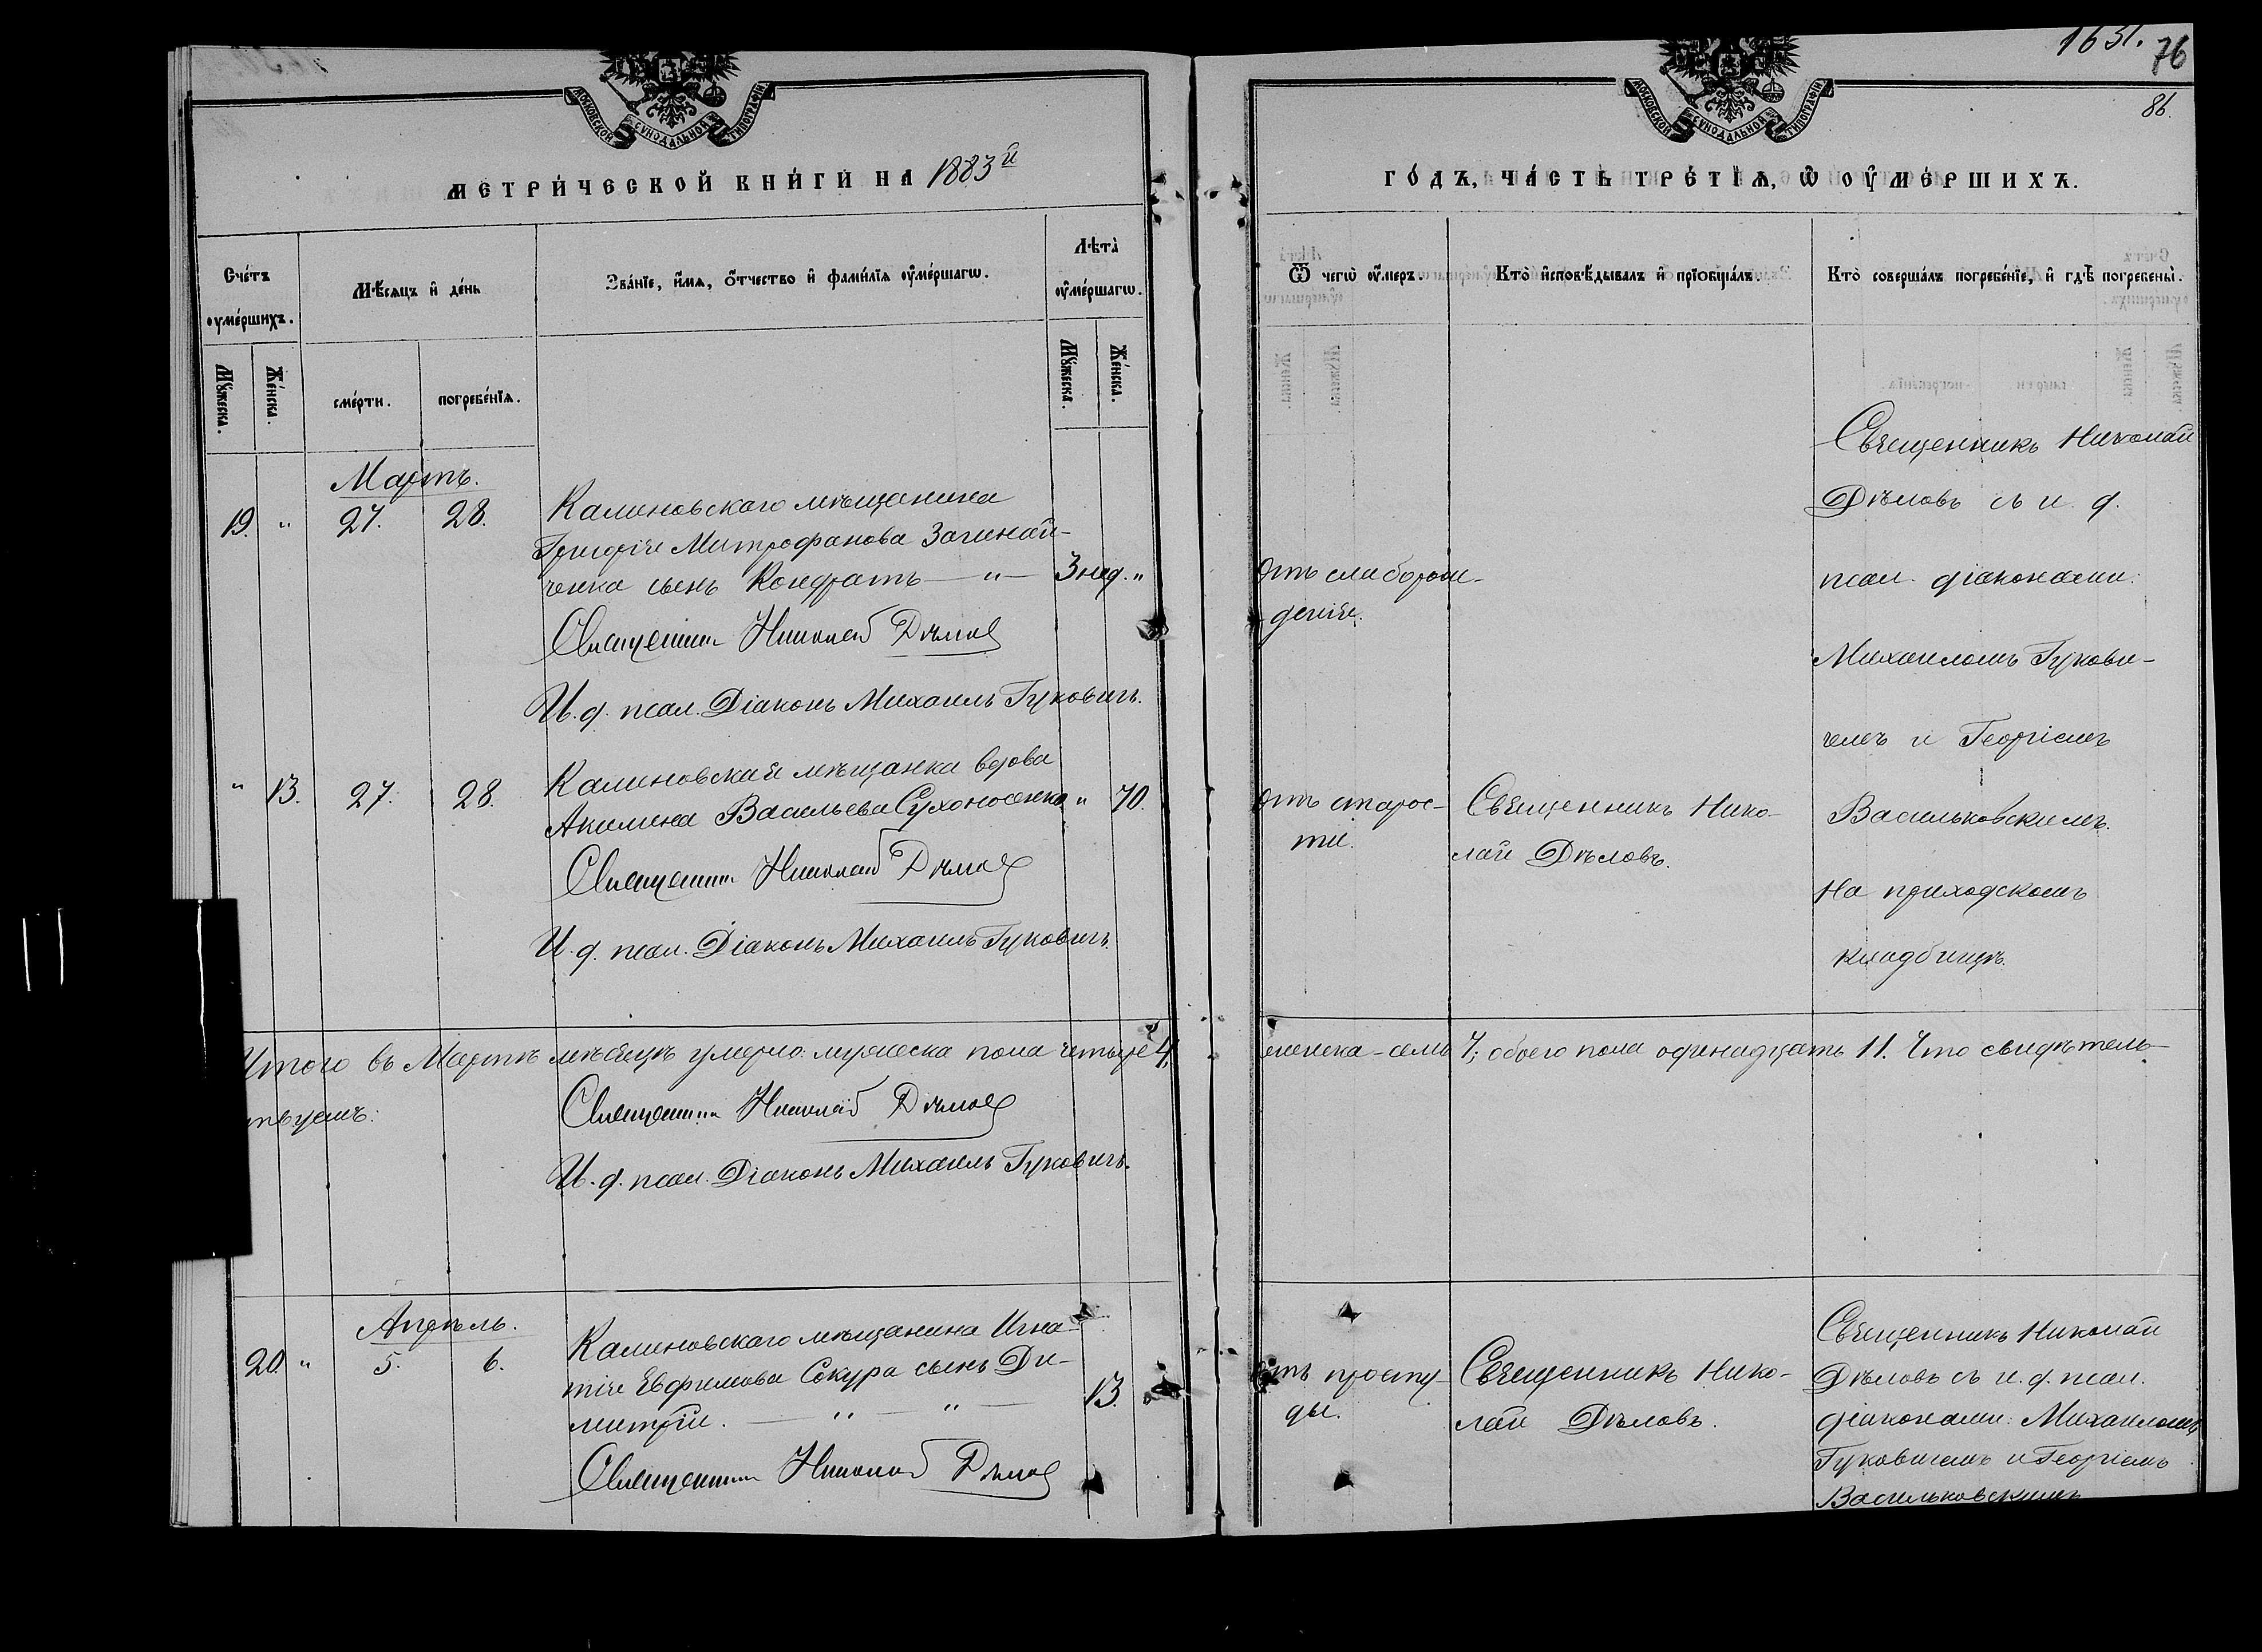 1631. 76
86.
МОСКОВСКОЙ СѴНОДАЛЬНОЙ ТИПОГРАФІИ
МОСКОВСКОЙ СѴНОДАЛЬНОЙ ТИПОГРАФІИ
МЕТРИ́ЧЕСКОЙ КНИ́ГИ НА 1883й
ГО́ДЪ, ЧА́СТЬ ТРЕ́ТІѦ, Ѿ ОУ҆МЕ́РШИХЪ.
Сче́тъ
оуме́ршихъ.
Мѣ́сяцъ и҆ де́нь
Зва́нїе, и҆́мѧ, ѻ҆́тчество и҆ фами́лїѧ оу҆ме́ршагѡ.
Лѣ́та
оу҆ме́ршагѡ.
Ѿ чегѡ̀ оу҆́меръ.
Кто̀ и҆сповѣ́дывалъ и҆ прїѡбща́лъ.
Кто̀ соверша́лъ погребе́нїе, и҆ гдѣ̀ погребены̀.
Мꙋ́жеска.
Же́нска.
сме́рти.
погребе́нїѧ.
Мꙋ́жеска.
Же́нска.
Мартъ.
19. " 27. 28.
Калиновскаго мѣщанина
Григорія Митрофанова Загинай-
ченка сынъ Кондратъ — " — 3 нед. "
Священникъ Николай Дѣловъ
И. д. псал. Діаконъ Михаилъ Гуковичъ.
отъ слаборож-
денія.
Священникъ Николай
Дѣловъ съ и. д.
псал. діаконами:
Михаиломъ Гукови-
чемъ и Георгіемъ
Васильковскимъ.
На приходскомъ
кладбищѣ.
" 13. 27. 28.
Калиновская мѣщанка вдова
Акилина Васильева Сухоносенко " 70.
Священникъ Николай Дѣловъ
И. д. псал. Діаконъ Михаилъ Гуковичъ.
отъ старос-
ти.
Священникъ Нико-
лай Дѣловъ.
Итого въ Мартѣ мѣсяцѣ умерло: мужеска пола четыре 4,
женска - семь 7; обоего пола одинадцать 11. Что свидѣтель-
ствуемъ:
Священникъ Николай Дѣловъ
И. д. псал. Діаконъ Михаилъ Гуковичъ.
Апрѣль.
20. " 5. 6.
Калиновскаго мѣщанина Игна-
тія Евфимова Сокура сынъ Ди-
митрій. — " — " — 13.
Священникъ Николай Дѣловъ
отъ просту-
ды.
Священникъ Нико-
лай Дѣловъ.
Священникъ Николай
Дѣловъ съ и. д. псал.
діаконами: Михаиломъ
Гуковичемъ и Георгіемъ
Васильковскимъ